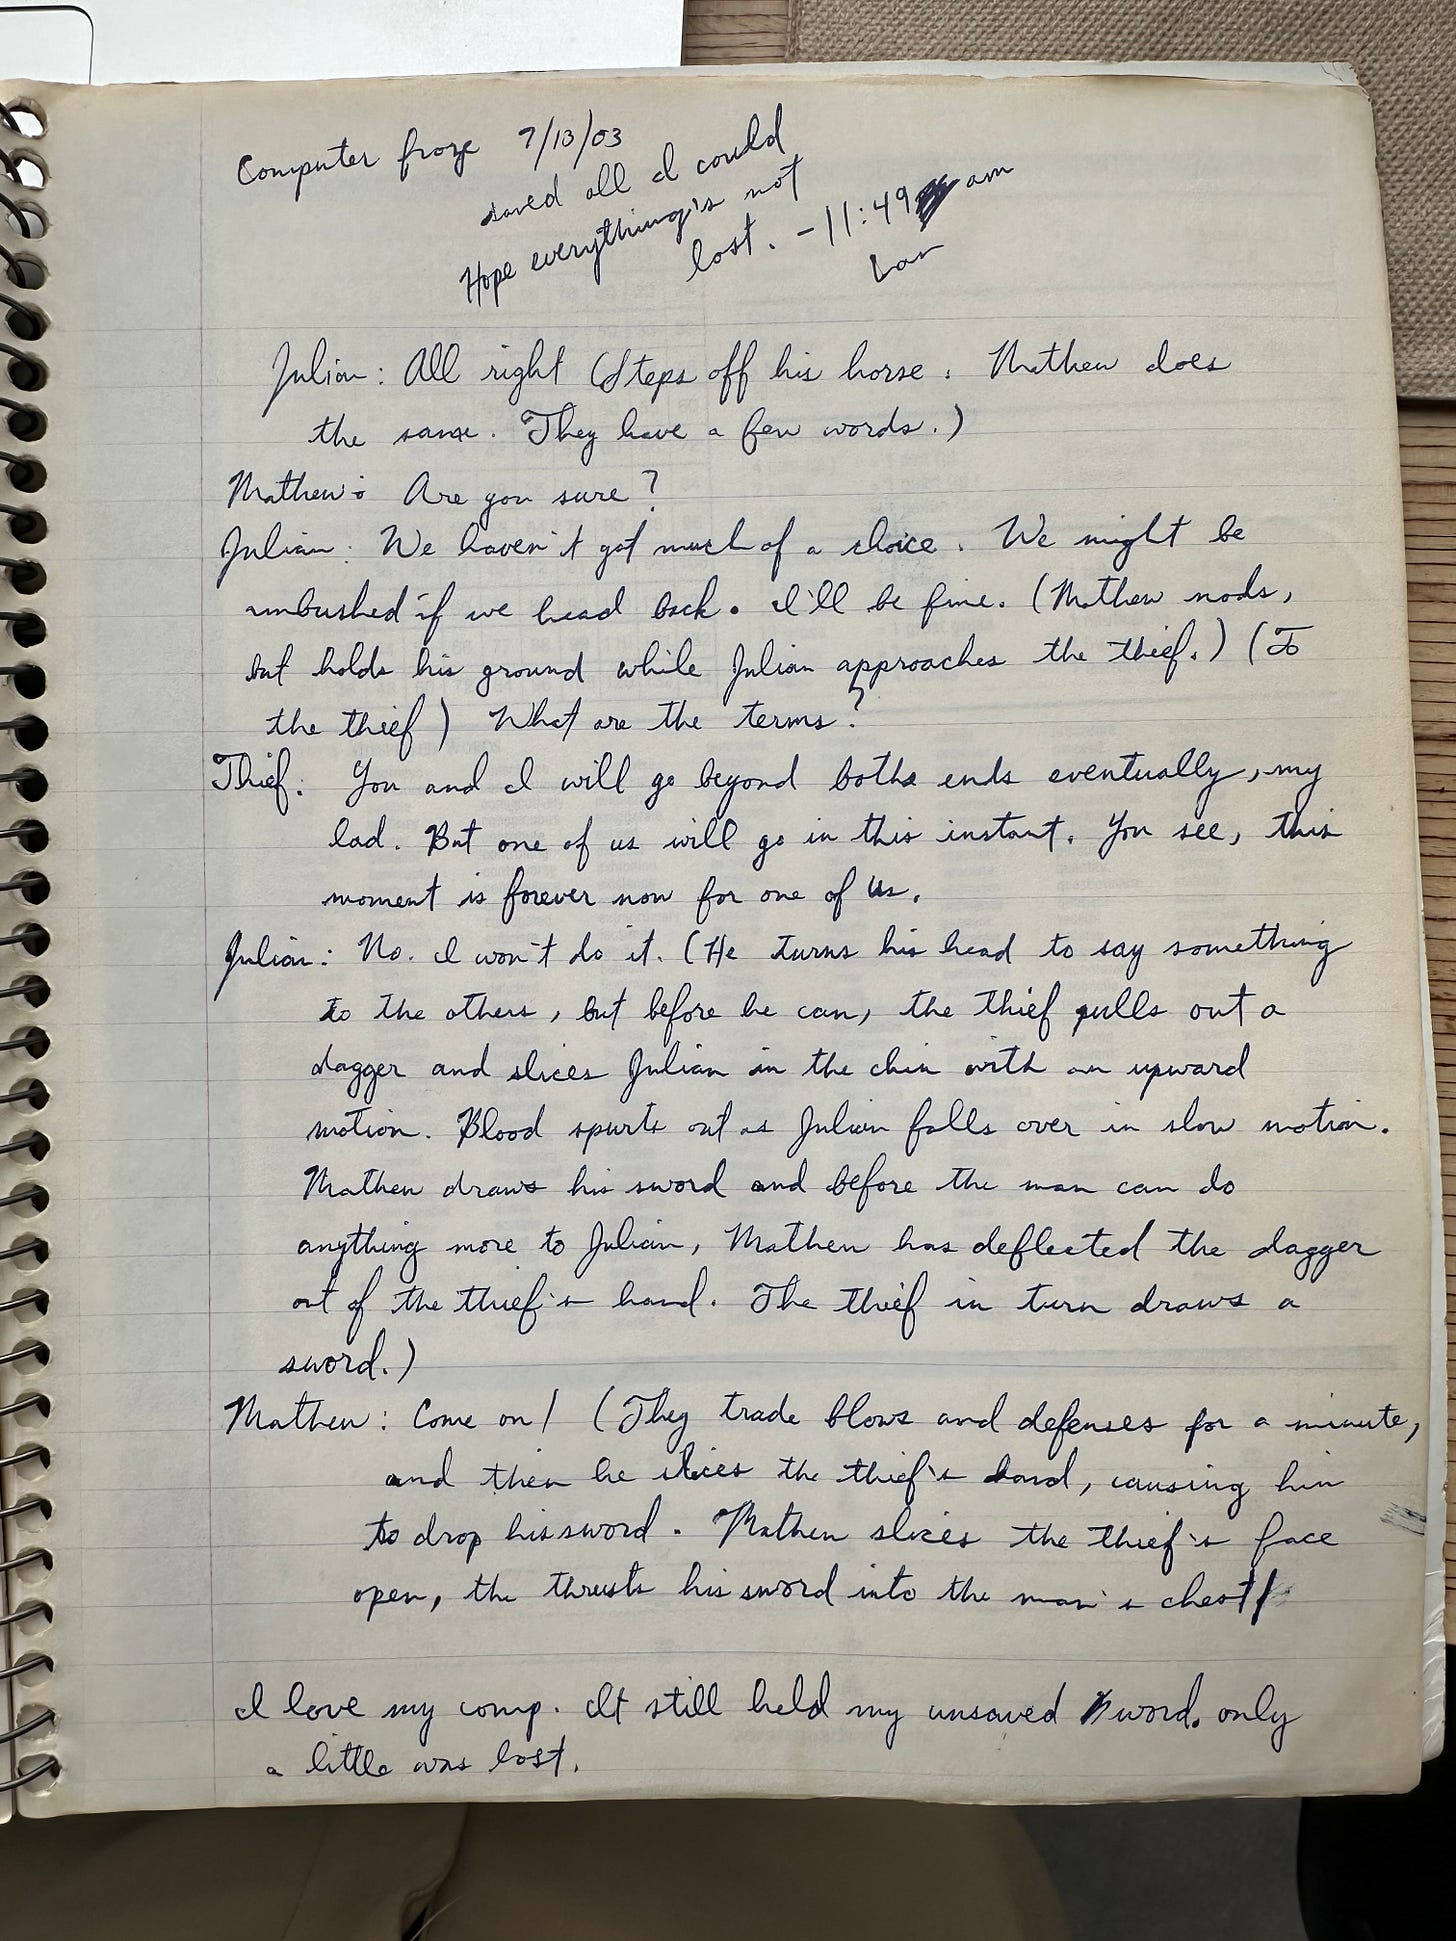 Computer froze 7/13/03
saved all I could
Hope everything's not
lost. - 11:49 am
Julian: All right (Steps off his horse. Mathew does
the same. They have a few words.)
Mathew: Are you sure?
Julian: We haven't got much of a choice. We might be
ambushed if we head back. I'll be fine. (Mathew nods,
but holds his ground while Julian approaches the thief.) (To
the thief) What are the terms?
Thief: You and I will go beyond both ends eventually, my
lad. But one of us will go in this instant. You see, this
moment is forever now for one of us.
Julian: No. I won't do it. (He turns his head to say something
to the others, but before he can, the thief pulls out a
dagger and slices Julian in the chin with an upward
motion. Blood spurts out as Julian falls over in slow motion.
Mathew draws his sword and before the man can do
anything more to Julian, Mathew has deflected the dagger
out of the thief's hand. The thief in turn draws a
sword.)
Mathew: Come on! (They trade blows and defenses for a minute,
and then he slices the thief's hand, causing him
to drop his sword. Mathew slices the thief's face
open, the thrusts his sword into the man's chest
I love my comp. It still held my unsaved word. only
a little was lost.